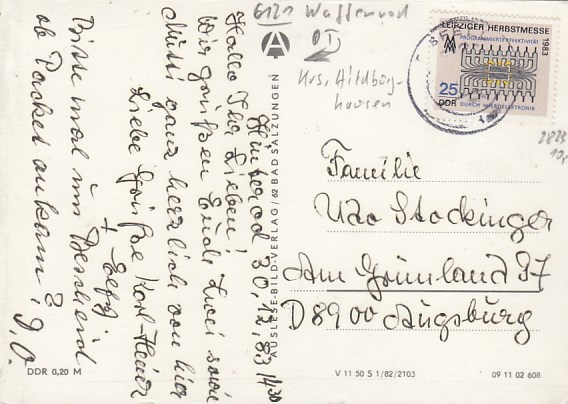 6121 Waffenrod
OT
Krs. Hildburg-
hausen
LEIPZIGER HERBSTMESSE
1983
PROGRAMMIERTE EFFEKTIVITÄT
25
DDR
DURCH MIKROELEKTRONIK
2823
Hinterrod 30.12.83 1430
Hallo Ihr Lieben!
Wir grüßen Euch zwei sowie
Mutti ganz herzlich von hier
Liebe Grüße Karl-Heinz
+
Bitte mal um Bescheid
ob Packet ankam?
Familie
Udo Stockinger
Am Grünland 37
D 8900 Augsburg
AUSLESE-BILD-VERLAG/62 BAD SALZUNGEN
DDR 0,20 M
V 11 50 S 1/82/2103
09 11 02 608